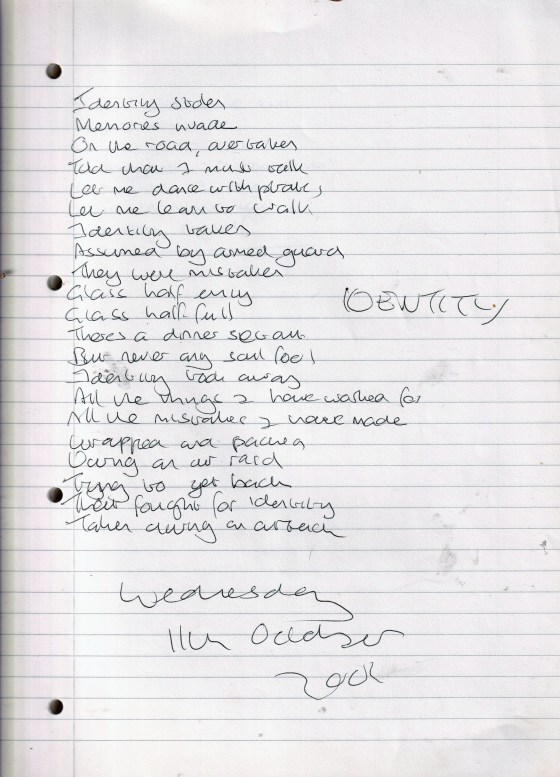 Identity stolen
Memories invade
On the road, overtaken
Told that I must talk
Let me dance with pirates
Let me learn to walk
Identity taken
Assumed by armed guard
They were mistaken
Glass half empty
IDENTITY
Glass half full
Theres a dinner
But never any soul food
Identity took away
All the things I have worked for
All the mistakes I have made
Wrapped and packed
During an air raid
Trying to get back
fought for identity
Taken during an attack
Wednesday
11th October